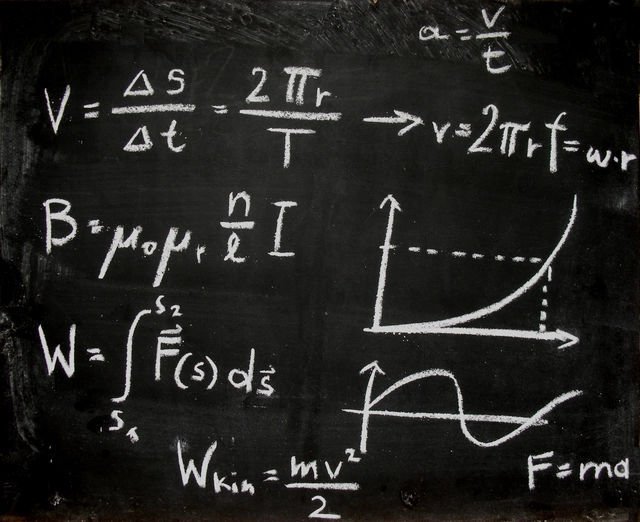 a = v/t
V = Δs/Δt = 2πr/T → v = 2πrf = w·r
B = μ₀μᵣ n/l I
W = ∫ₛ₁^s₂ F⃗(s) ds⃗
W_kin = mv²/2
F = ma